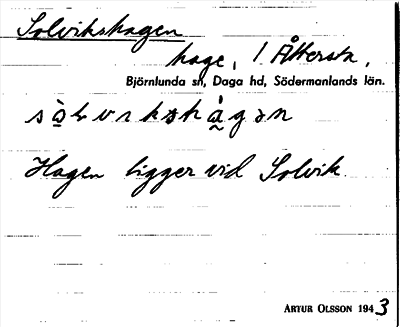 Solvikshagen
hage, 1 Åttersta,
Björnlunda sn, Daga hd, Södermanlands län.
Hagen ligger vid Solvik.
ARTUR OLSSON 1943